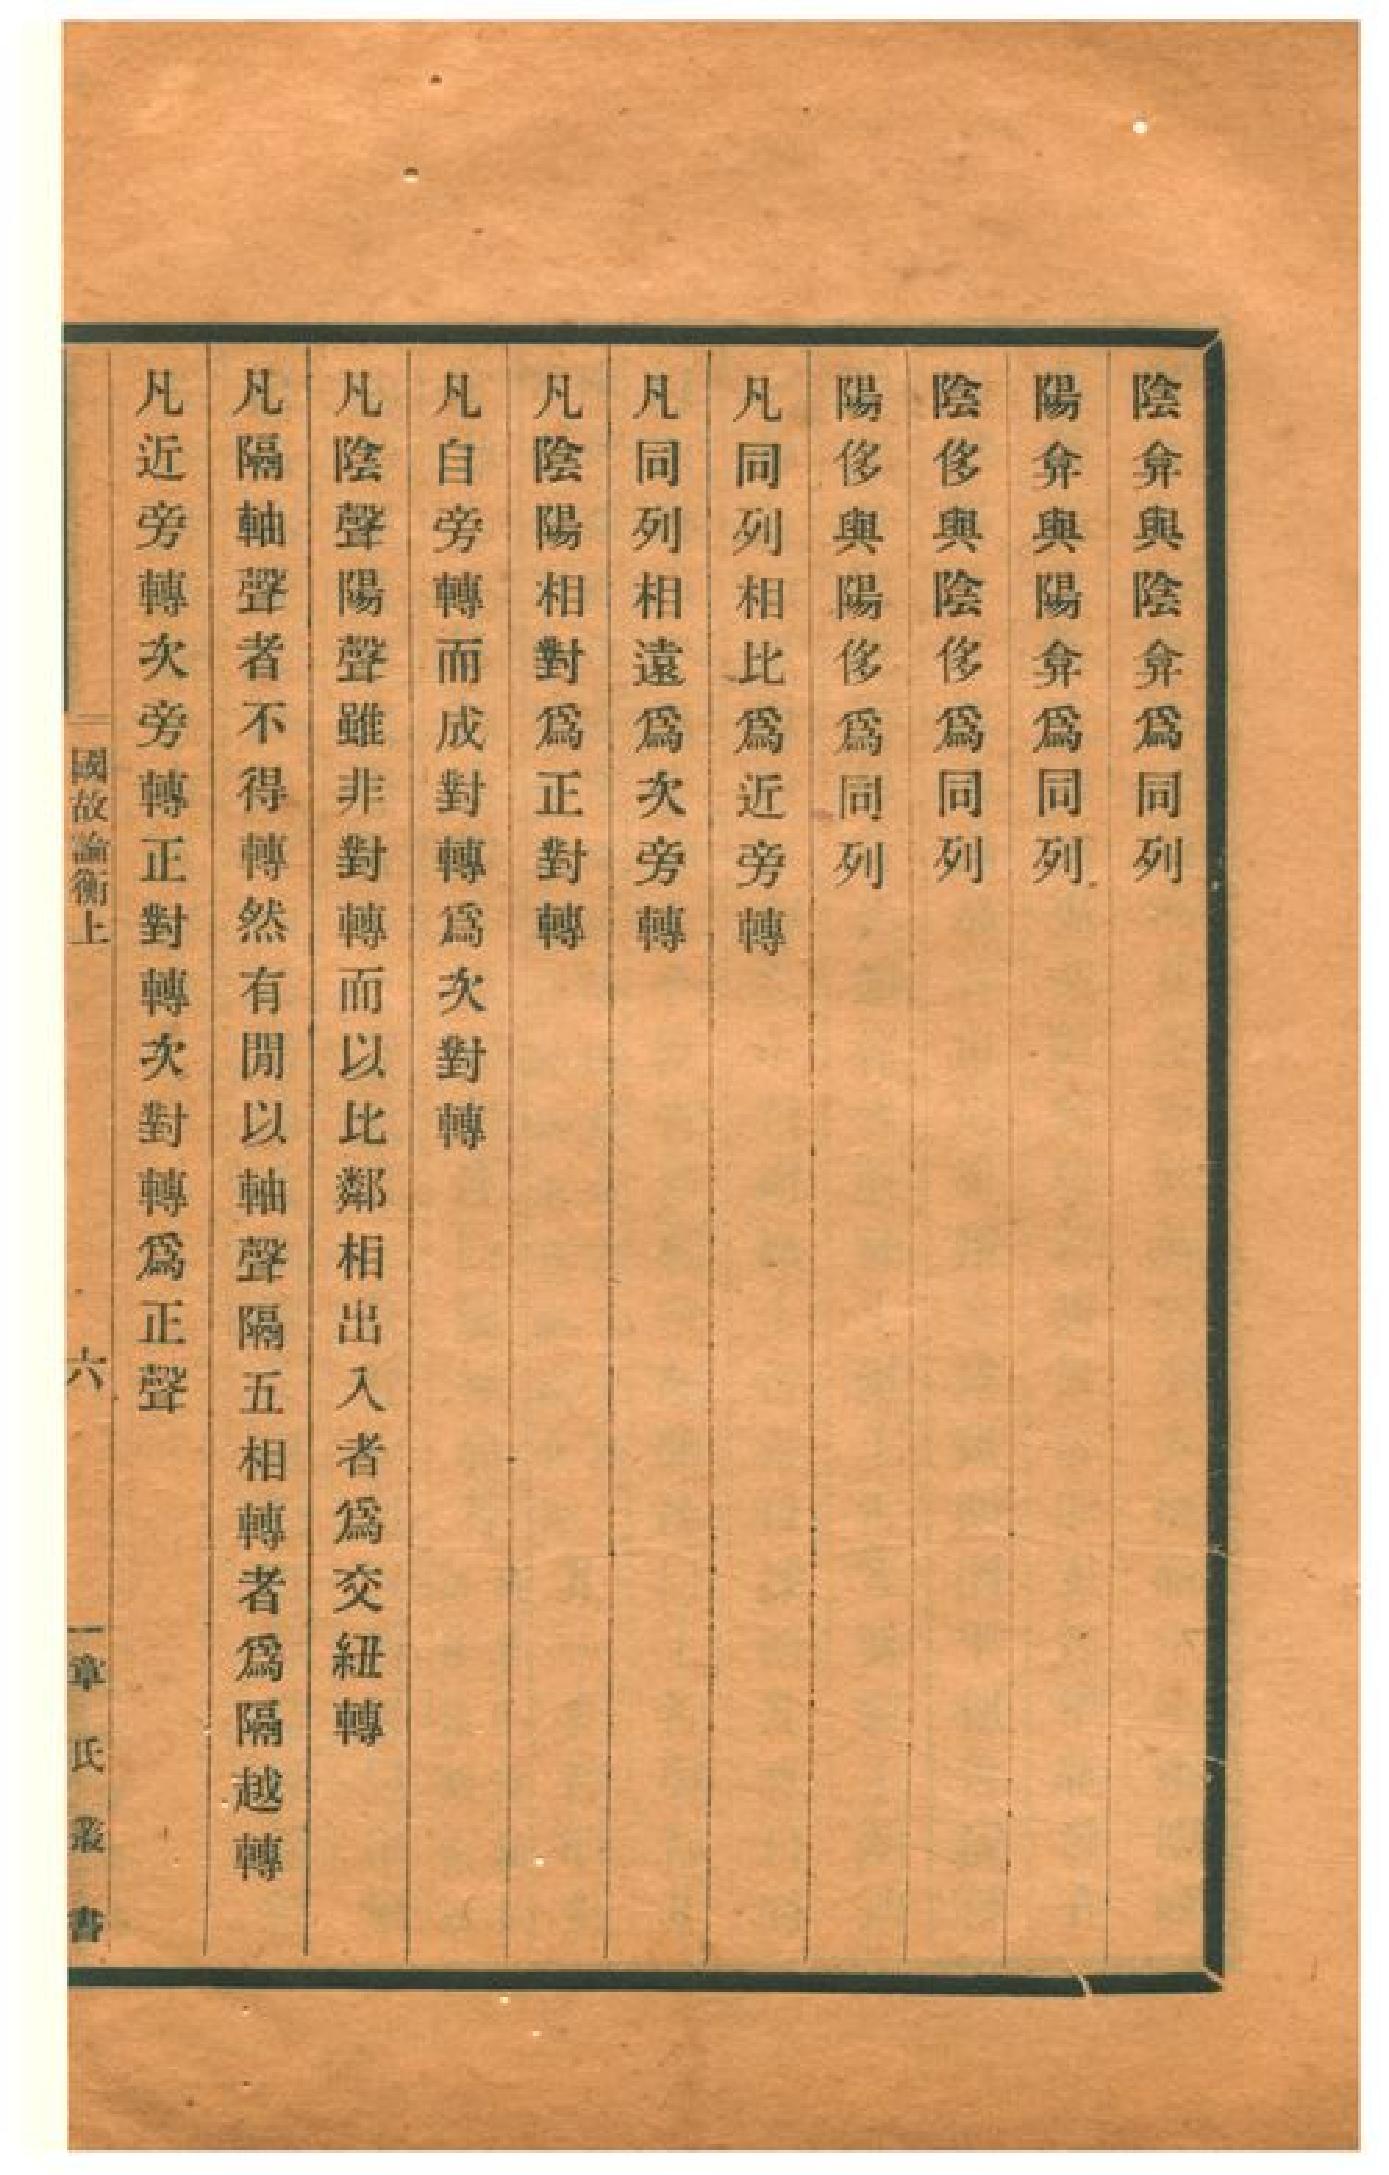 陰弇與陰弇爲同列
陽弇與陽弇爲同列
陰侈與陰侈爲同列
陽侈與陽侈爲同列
凡同列相比爲近旁轉
凡同列相遠爲次旁轉
凡陰陽相對爲正對轉
凡自旁轉而成對轉爲次對轉
凡陰聲陽聲雖非對轉而以比鄰相出入者爲交紐轉
凡隔軸聲者不得轉然有閒以軸聲隔五相轉者爲隔越轉
凡近旁轉次旁轉正對轉次對轉爲正聲
國故論衡上
六
章氏叢書